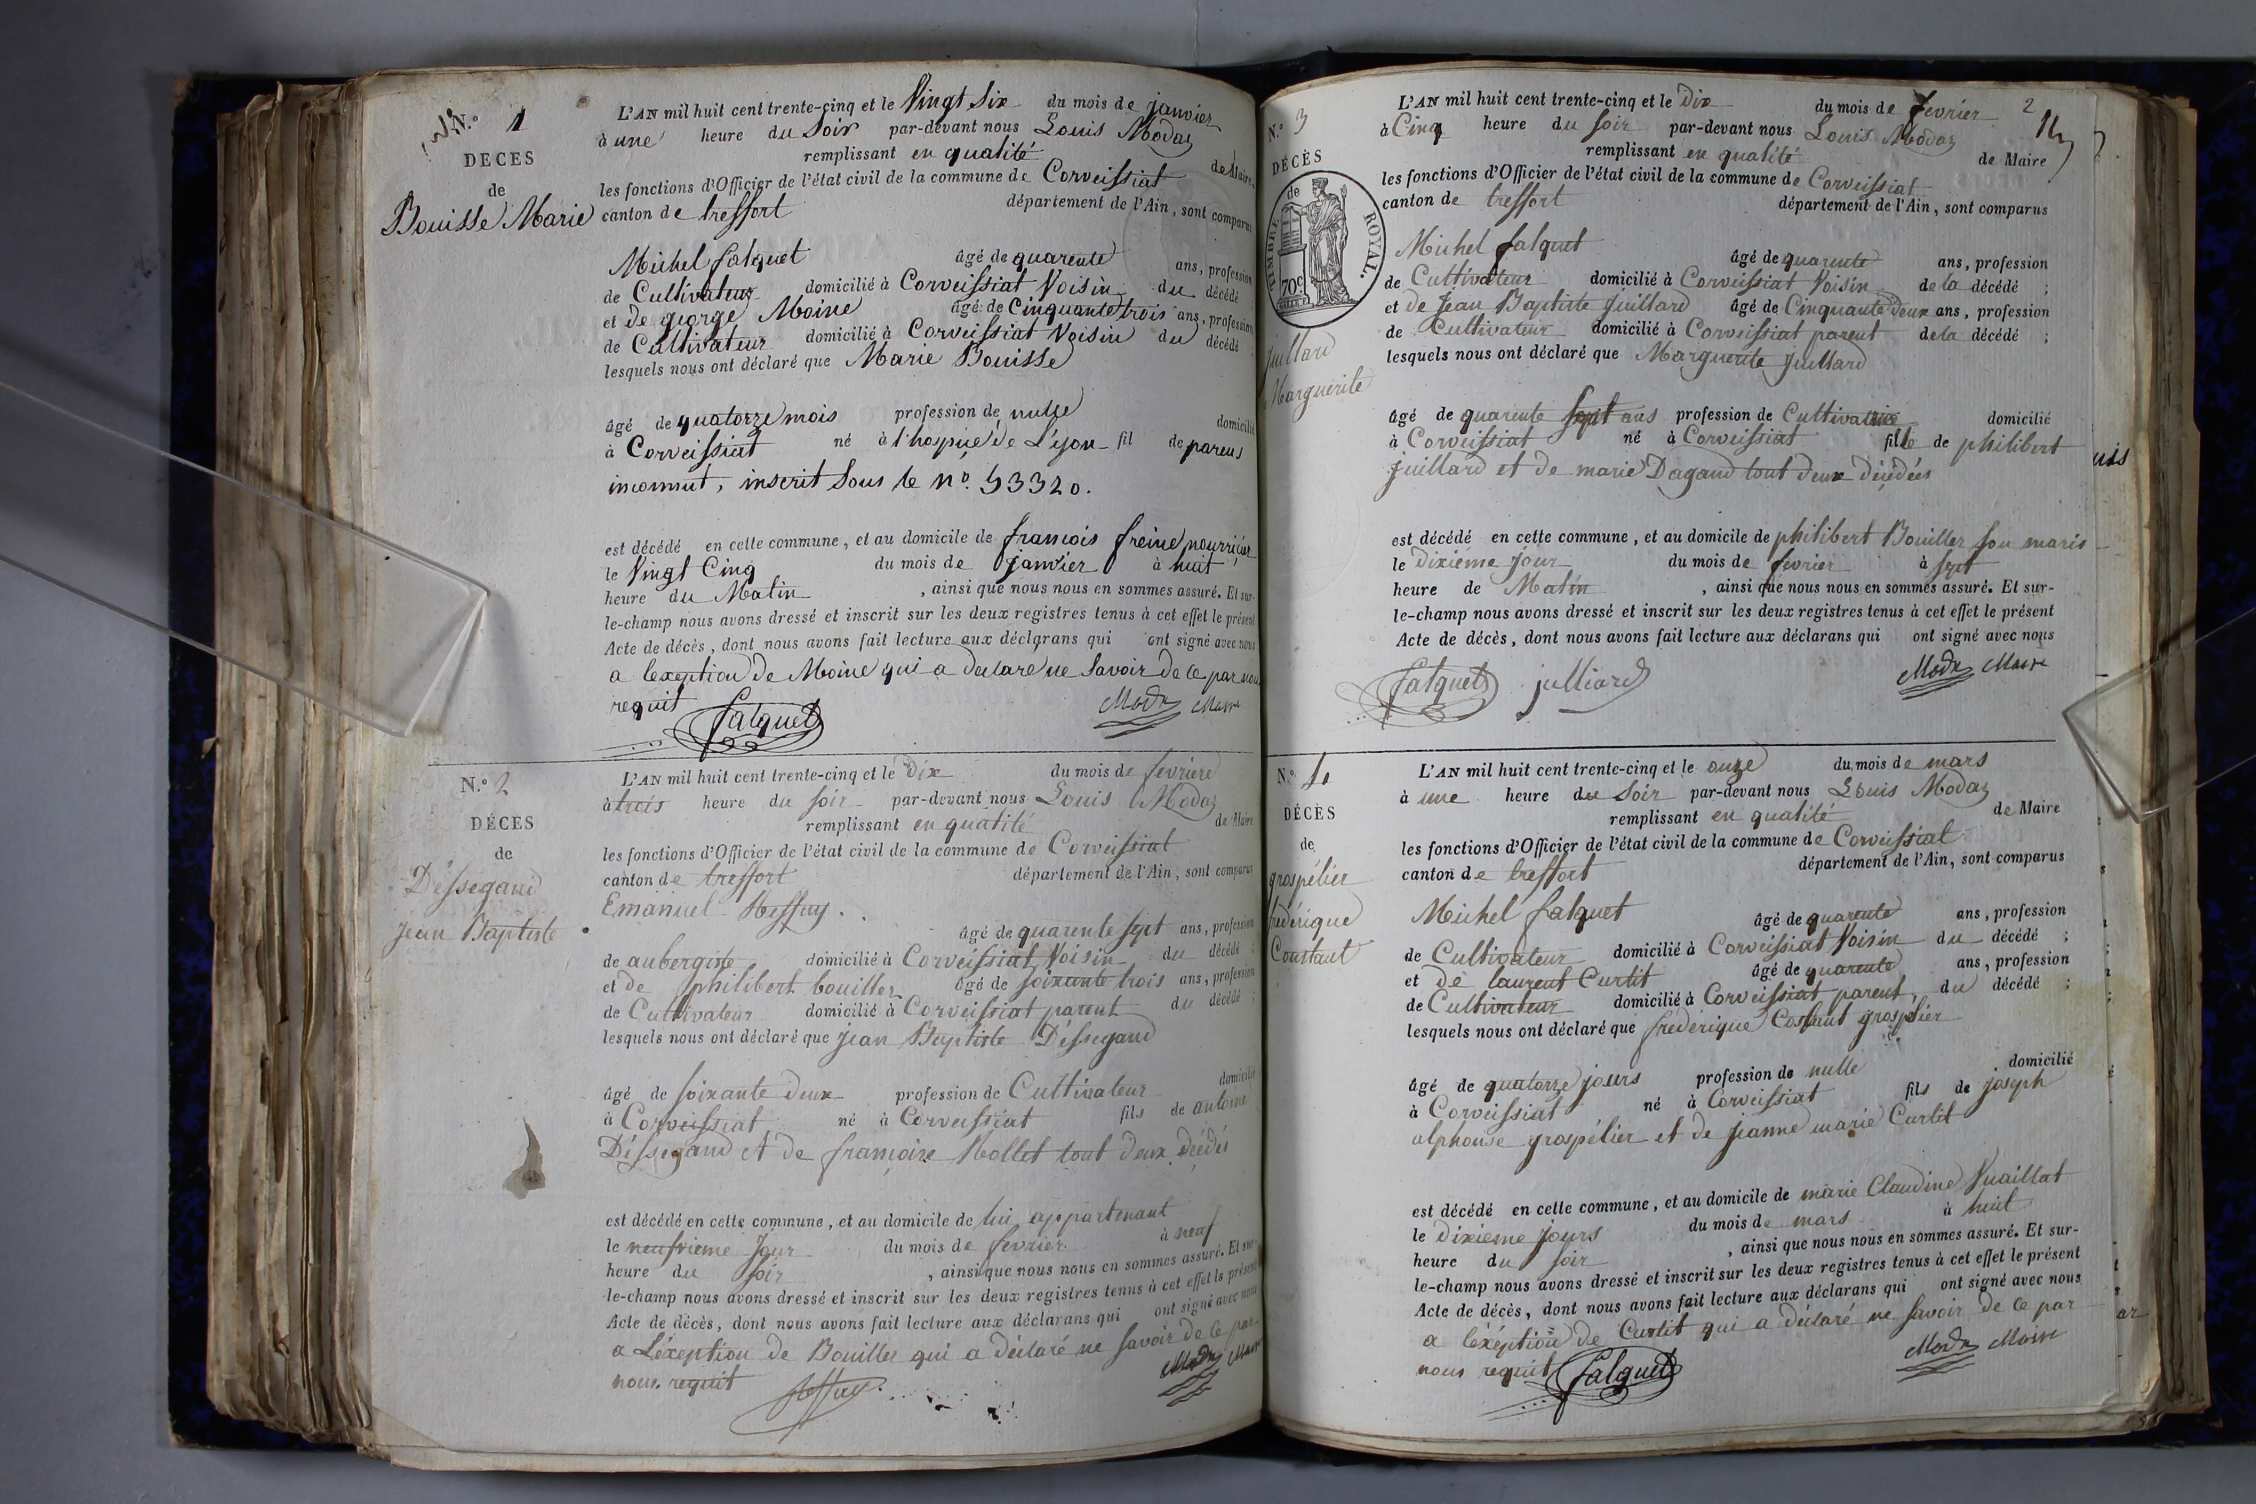 N.º 1
DECES
de
Bouisse Marie
L'AN mil huit cent trente-cinq et le Vingt Six du mois de janvier
à une heure du Soir par-devant nous Louis Modaz
remplissant en qualité de Maire
les fonctions d'Officier de l'état civil de la commune de Corveissiat
canton de treffort département de l'Ain, sont comparus
Michel falquet âgé de quarente ans, profession
de Cultivateur domicilié à Corveissiat Voisin du décédé
et de george Moine âgé de Cinquante trois ans, profession
de Cultivateur domicilié à Corveissiat Voisin du décédé
lesquels nous ont déclaré que Marie Bouisse
âgé de quatorze mois profession de nulle domicilié
à Corveissiat né à l'hospice de Lyon fil de parens
inconnut, inscrit Sous le nº. 53320.
est décédé en cette commune, et au domicile de francois freine nourricier
le Vingt Cinq du mois de janvier à huit
heure du Matin , ainsi que nous nous en sommes assuré. Et sur-
le-champ nous avons dressé et inscrit sur les deux registres tenus à cet effet le présent
Acte de décès, dont nous avons fait lecture aux déclarans qui ont signé avec nous
a lexeption de Moine qui a declare ne Savoir de ce par nous
requit falquet Modaz Maire
N.º 2
DÉCES
de
Déssegaud
jean Baptiste
L'AN mil huit cent trente-cinq et le Dix du mois de fevriere
à trois heure du soir par-devant nous Louis Modaz
remplissant en qualité de Maire
les fonctions d'Officier de l'état civil de la commune de Corveissiat
canton de treffort département de l'Ain, sont comparus
Emanuel
âgé de quarente sept ans, profession
de aubergiste domicilié à Corveissiat Voisin du décédé ;
et de philibert bouiller âgé de soixante trois ans, profession
de Cultivateur domicilié à Corveissiat parent du décédé ;
lesquels nous ont déclaré que jean Baptiste Déssegaud
âgé de soixante deux profession de Cultivateur domicilié
à Corveissiat né à Corveissiat fils de antoine
Déssegaud et de francoise Mollet tout deux décédés
est décédé en cette commune, et au domicile de lui appartenant
le neufvieme Jour du mois de fevrier à neuf
heure du soir , ainsi que nous nous en sommes assuré. Et sur-
le-champ nous avons dressé et inscrit sur les deux registres tenus à cet effet le présent
Acte de décès, dont nous avons fait lecture aux déclarans qui ont signé avec nous
a Léxeption de Bouiller qui a déclaré ne savoir de ce par
nous requit Modaz Maire
2
N.º 3
DÉCÈS
de
TIMBRE ROYAL.
70c
juillard
Marguerite
L'AN mil huit cent trente-cinq et le Dix du mois de fevrier
à Cinq heure du soir par-devant nous Louis Modaz
remplissant en qualité de Maire
les fonctions d'Officier de l'état civil de la commune de Corveissiat
canton de treffort département de l'Ain, sont comparus
Michel falquet âgé de quarente ans, profession
de Cultivateur domicilié à Corveissiat Voisin de la décédé ;
et de Jean Baptiste juillard âgé de Cinquante deux ans, profession
de Cultivateur domicilié à Corveissiat parent dela décédé ;
lesquels nous ont déclaré que Marguerite juillard
âgé de quarente sept ans profession de Cultivatrice domicilié
à Corveissiat né à Corveissiat fille de philibert
juillard et de marie Dagaud tout deux décédées
est décédé en cette commune, et au domicile de philibert Bouiller son maris
le dixiéme jour du mois de fevrier à sept
heure de Matin , ainsi que nous nous en sommes assuré. Et sur-
le-champ nous avons dressé et inscrit sur les deux registres tenus à cet effet le présent
Acte de décès, dont nous avons fait lecture aux déclarans qui ont signé avec nous
falquet julliard Modaz Maire
N.º 4
DÉCÈS
de
grospélier
frédérique
Constant
L'AN mil huit cent trente-cinq et le onze du mois de mars
à une heure du Soir par-devant nous Louis Modaz
remplissant en qualité de Maire
les fonctions d'Officier de l'état civil de la commune de Corveissiat
canton de treffort département de l'Ain, sont comparus
Michel falquet âgé de quarente ans, profession
de Cultivateur domicilié à Corveissiat Voisin du décédé ;
et de laurent Curtit âgé de quarente ans, profession
de Cultivateur domicilié à Corveissiat parent, du décédé ;
lesquels nous ont déclaré que frédérique Costant grospelier
âgé de quatorze jours profession de nulle domicilié
à Corveissiat né à Corveissiat fils de joseph
alphonse grospélier et de jeanne marie Curtit
est décédé en cette commune, et au domicile de marie Claudine Vuaillat
le dixieme jours du mois de mars à huit
heure du soir , ainsi que nous nous en sommes assuré. Et sur-
le-champ nous avons dressé et inscrit sur les deux registres tenus à cet effet le présent
Acte de décès, dont nous avons fait lecture aux déclarans qui ont signé avec nous
a léxéption de Curtit qui a déclaré ne savoir de ce par
nous requit falquet Modaz Maire